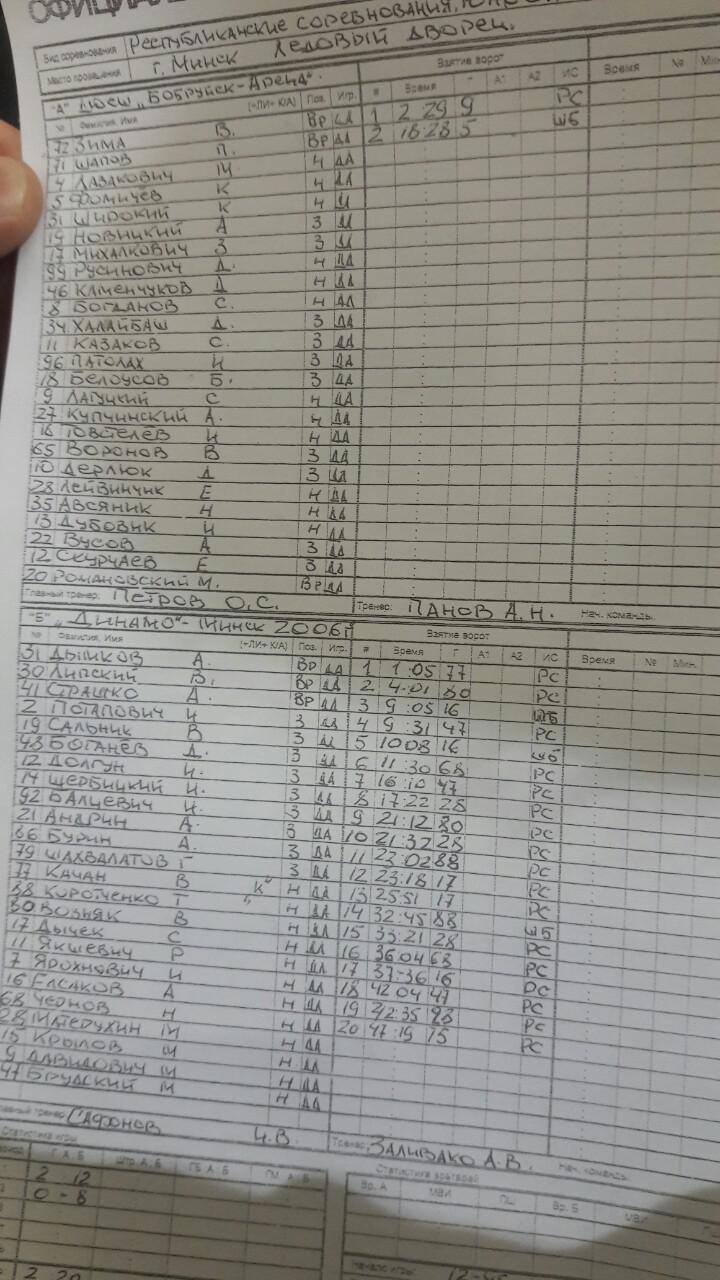 Вид соревнования РЕСПУБЛИКАНСКИЕ СОРЕВНОВАНИЯ,
Место проведения г. МИНСК ЛЕДОВЫЙ ДВОРЕЦ.
"А" „БОБРУЙСК-АРЕНА". Взятие ворот
№ Фамилия, Имя Поз. Игр. # Время Г А1 А2 ИС Время № Мин.
72 ЗИМА В. Вр ДА 1 2 29 9 РС
71 ШАПОВ П. Вр ДА 2 16:28 5 шб
4 ЛАЗАКОВИЧ М Н ДА
5 ФОМИЧЕВ К Н ДА
31 ШИРОКИЙ К Н
19 НОВИЦКИЙ А З
17 МИХАЛКОВИЧ З З
99 РУСИНОВИЧ Д. Н ДА
46 КЛМЕНЧУКОВ Д Н ДА
8 БОГДАНОВ С. Н ДА
34 ХАЛАЙБАШ Д. З ДА
11 КАЗАКОВ С. З ДА
96 ПАТОЛАХ И З ДА
18 БЕЛОУСОВ Б. З ДА
9 ЛАГУЦКИЙ С Н ДА
27 КУПЧИНСКИЙ А. Н ДА
16 ТОВСТЕЛЕВ И Н ДА
65 ВОРОНОВ В З ДА
10 ДЕРЛЮК Д З ДА
28 ЛЕЙВИНЧИК Е Н ДА
35 АВСЯНИК Н Н ДА
13 ДУБОВИК И Н ДА
22 ВУСОВ А З ДА
12 СКУРЧАЕВ Е З ДА
20 РОМАНОВСКИЙ М. Вр ДА
Главный тренер: ПЕТРОВ О.С. Тренер: ПАНОВ А.Н. Нач. команды.
"Б" „ДИНАМО"-МИНСК 2006г Взятие ворот
№ Фамилия, Имя Поз. Игр. # Время Г А1 А2 ИС Время № Мин.
31 ДЫМКОВ А. Вр ДА 1 1:05 77 РС
30 ЛИПСКИЙ В. Вр ДА 2 4:01 80 РС
41 СТРАШКО Д. Вр ДА 3 9:05 16 шб
2 ПОТАПОВИЧ И З ДА 4 9:31 47 РС
19 САЛЬНИК В З ДА 5 10 08 16 шб
48 БОГАНЁВ Д. З ДА 6 11:30 68 РС
12 ДОЛГУН И. З ДА 7 16:10 47 РС
14 ЩЕРБИЦКИЙ И. З ДА 8 17:22 28 РС
92 БАЛЦЕВИЧ И. З ДА 9 21:12 80 РС
21 АНДРИН А. З ДА 10 21:32 28 РС
66 БУРИН А. З ДА 11 23:02 88 РС
79 ШАХВАЛАТОВ Г З ДА 12 23:18 17 РС
77 КАЧАН В „К" Н ДА 13 25:51 17 РС
88 КОРОТЧЕНКО Т Н ДА 14 32:45 88 шб
80 ВОЗНЯК В Н ДА 15 33:21 28 РС
17 ДЫЧЕК С Н ДА 16 36:04 68 РС
11 ЯКШЕВИЧ Р Н ДА 17 37:36 16 РС
7 ЯРОХНОВИЧ И Н ДА 18 42 04 47 РС
16 ЕЛСАКОВ А Н ДА 19 42:35 РС
68 ЧЕРНОВ Н Н ДА 20 47:19 15 РС
28 МАТЕРУХИН М Н ДА
15 КРЫЛОВ М Н ДА
9 ДАВИДОВИЧ М Н ДА
47 БРУДСКИЙ М Н ДА
Главный тренер САФОНОВ Тренер: ЗАЛИВАКО А.В. Нач. команды.
Статистика игры Статистика вратарей
период Г А:Б Штр. А:Б ГБ А:Б ГМ А:Б Вр. А МВИ ПШ Вр. Б МВИ
2 12
0 - 8
2 20 Начало игры